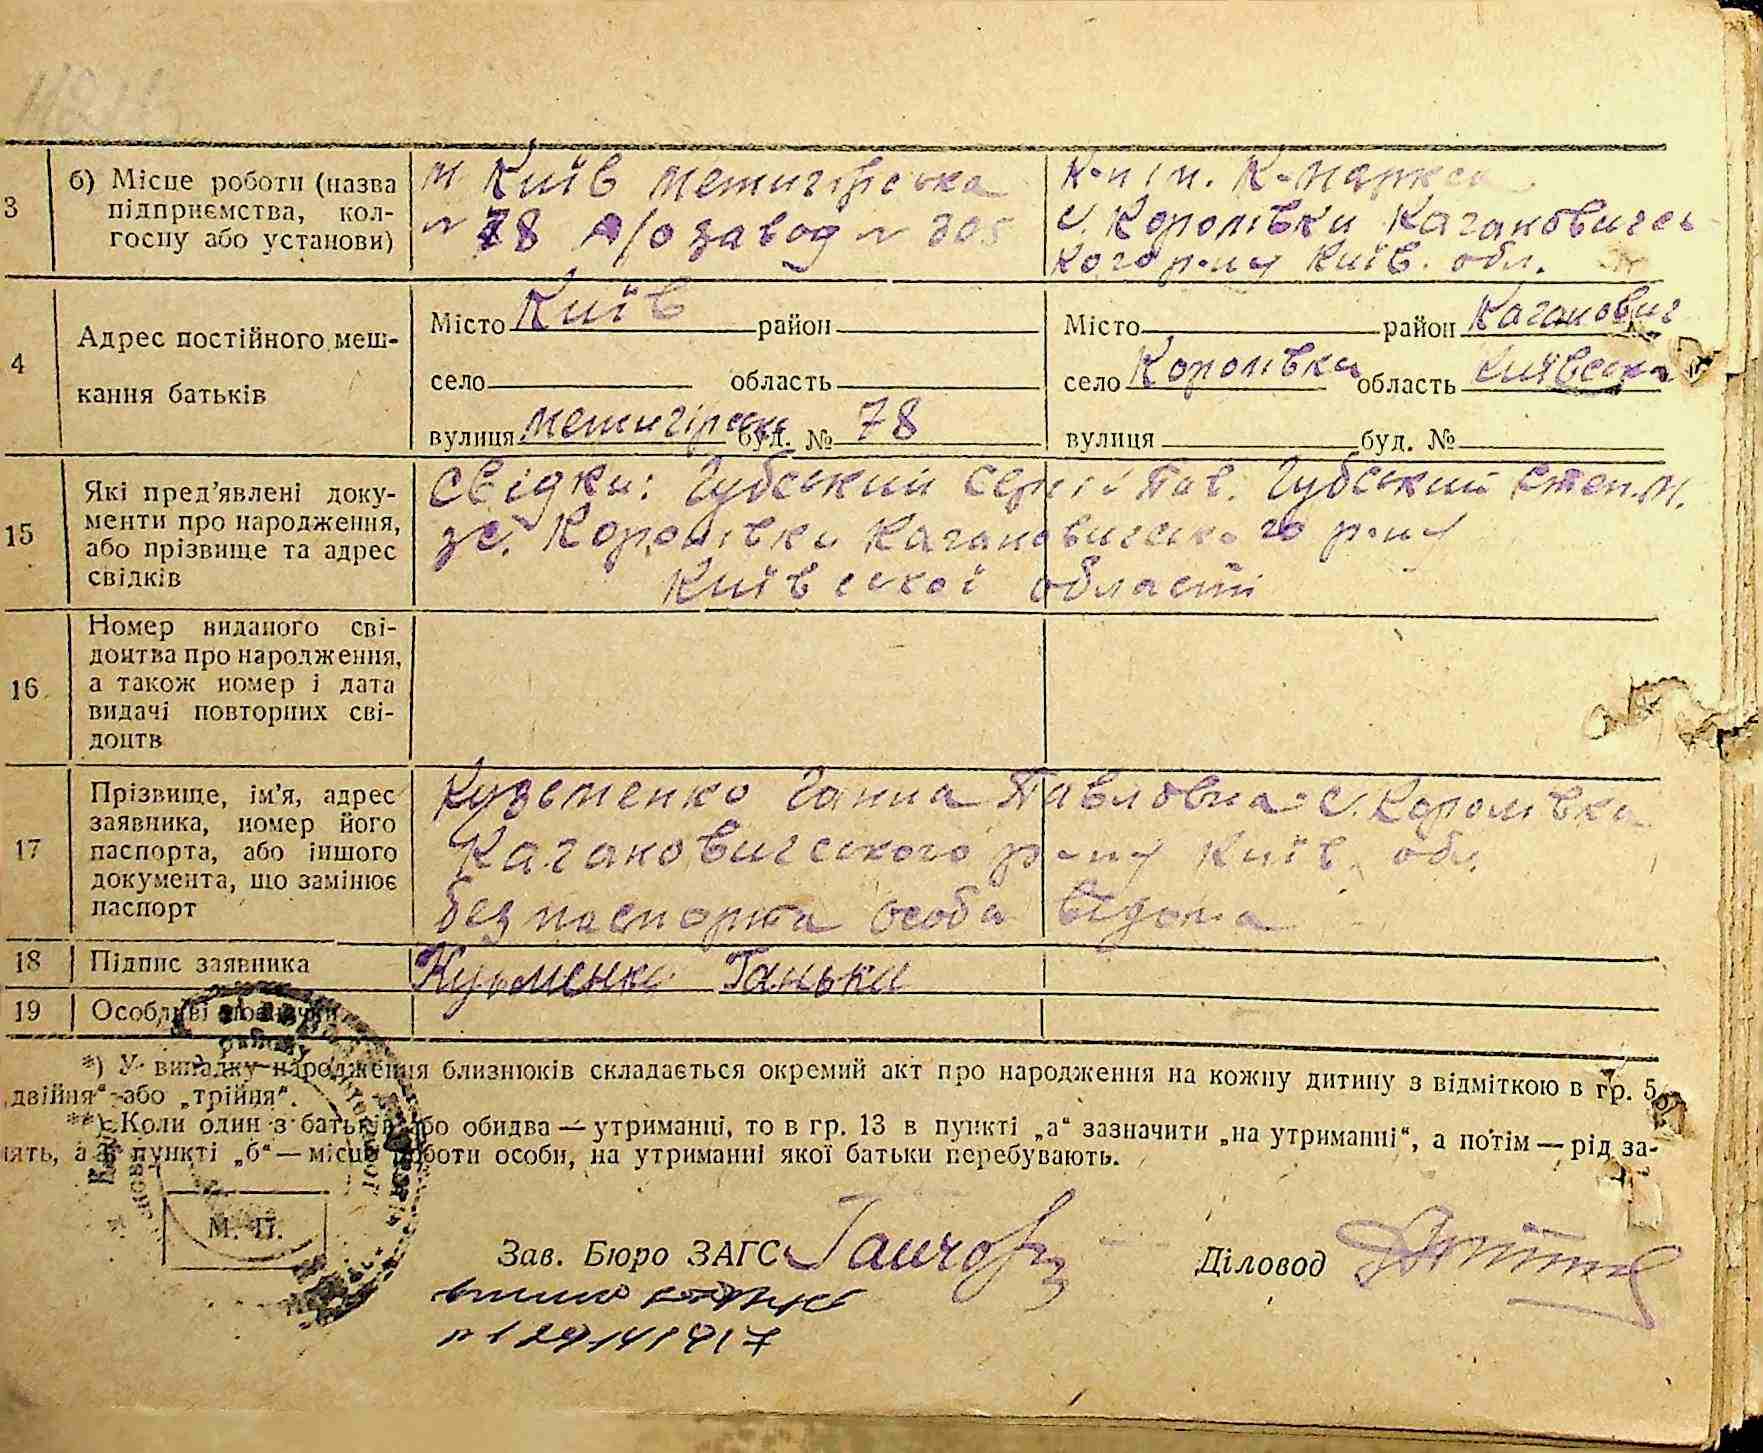 3 б) Місце роботи (назва підприємства, колгоспу або установи)
м Київ Межигірська
№ 78 п/о завод № 305
К-п ім. К-Маркса
с. Королівки Кагановичсь
кого р-ну Київ. обл.
4 Адрес постійного мешкання батьків
Місто Київ район
село область
вулиця Межигірська буд. № 78
Місто район Каганович
село Королівка область Київська
вулиця буд. №
15 Які пред'явлені документи про народження, або прізвище та адрес свідків
Свідки: Губський Сергій Пав. Губський Степ. М.
з с. Королівки Кагановичського р-ну
Київської області
16 Номер виданого свідоцтва про народження, а також номер і дата видачі повторних свідоцтв
17 Прізвище, ім'я, адрес заявника, номер його паспорта, або іншого документа, що замінює паспорт
Кузьменко Ганна Павловна с. Королівка
Кагановичського р-ну Київ. обл.
без паспорта особа відома
18 Підпис заявника Кузьменко Ганька
19 Особливі
*) У випадку народження близнюків складається окремий акт про народження на кожну дитину з відміткою в гр. 5
„двійня“ або „трійня“.
**) Коли один з батьків або обидва — утриманці, то в гр. 13 в пункті „а“ зазначити „на утриманні“, а потім — рід за-
нять, а в пункті „б“ — місце роботи особи, на утриманні якої батьки перебувають.
М. П.
Зав. Бюро ЗАГС
Діловод